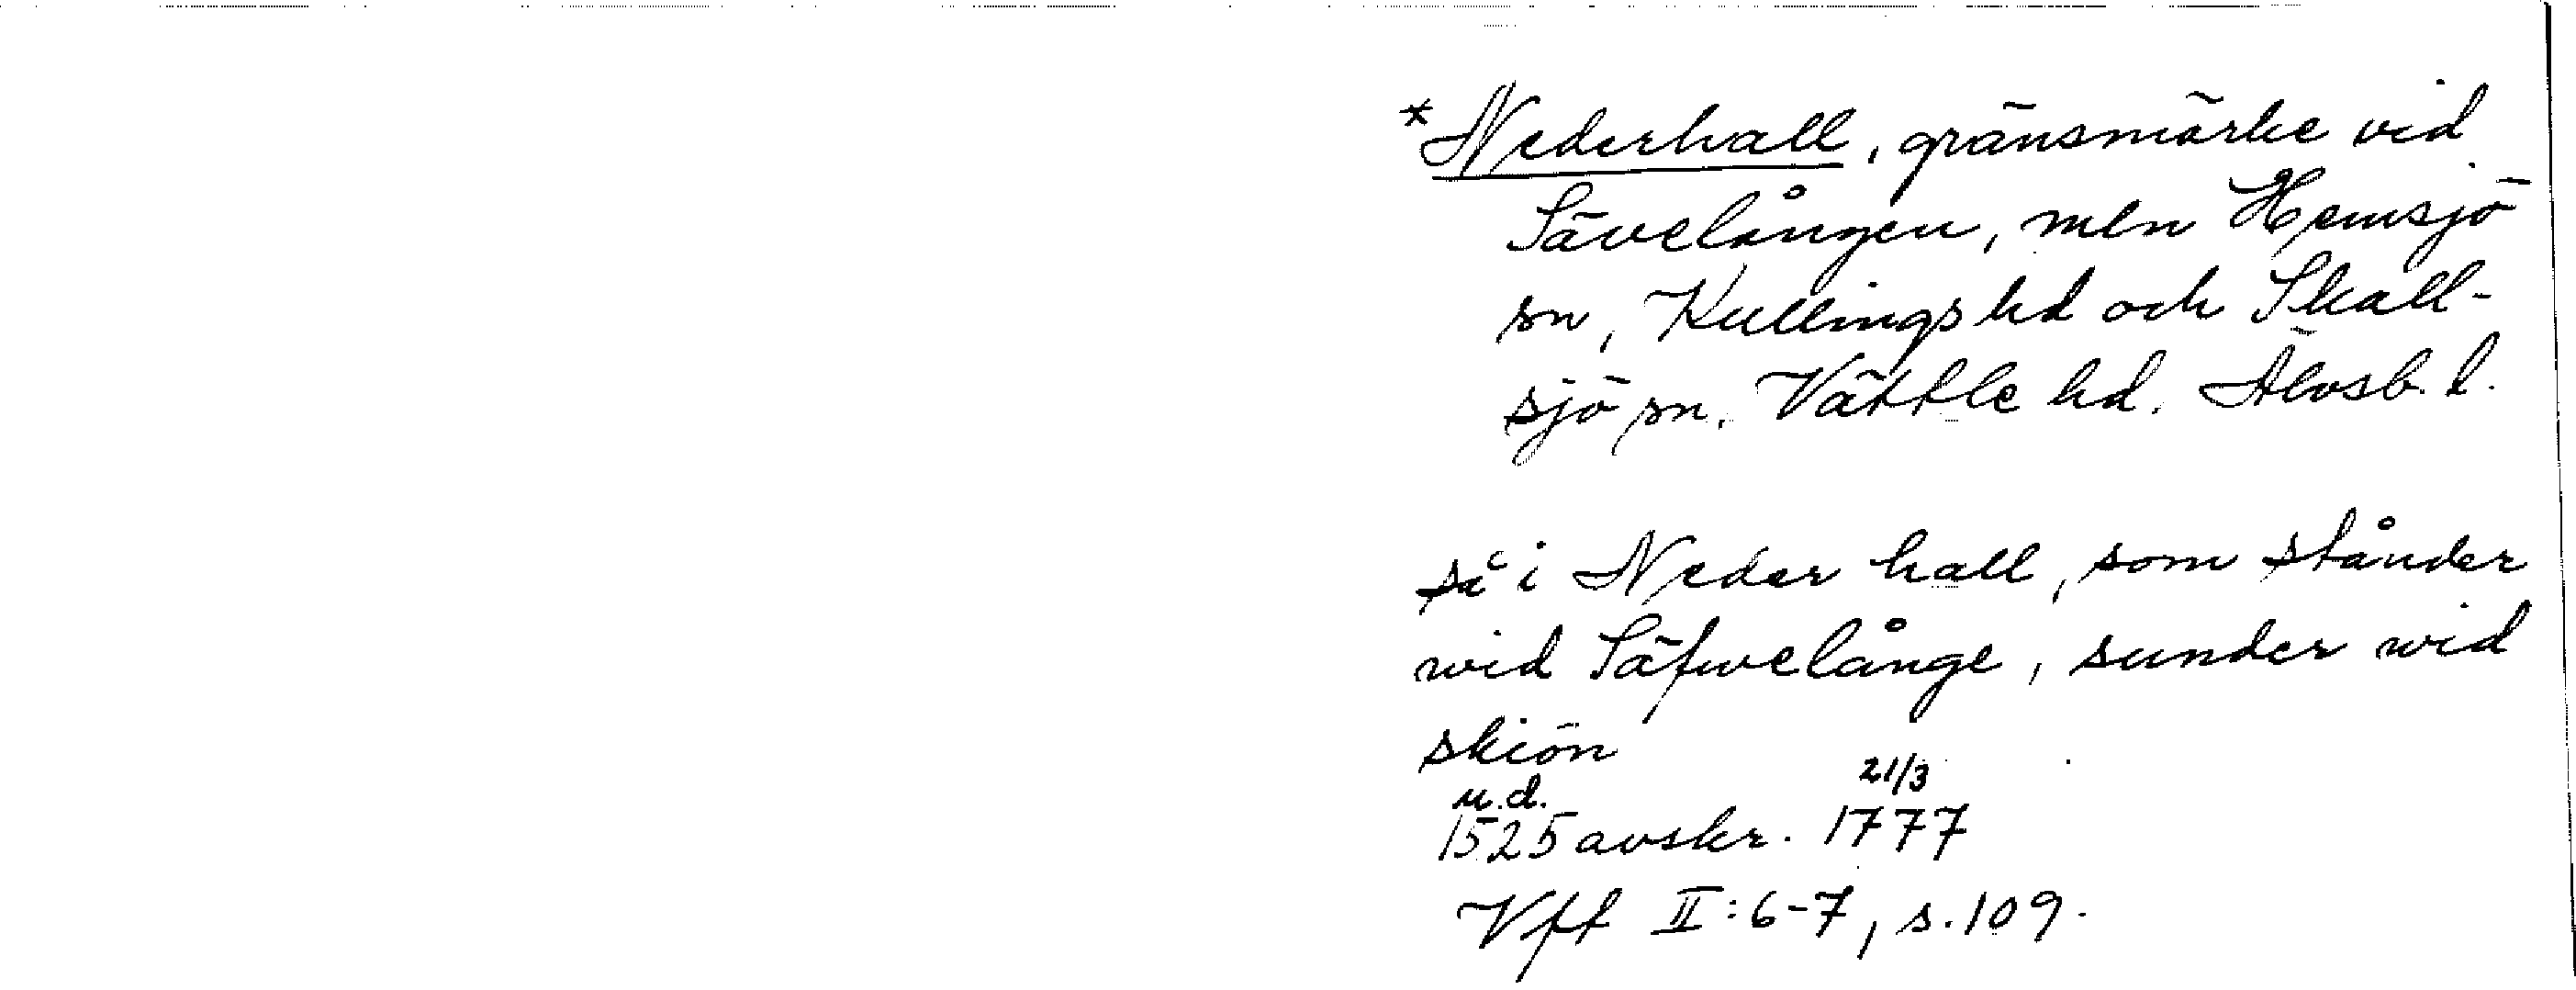 *Nederhall, gränsmärke vid
Sävelången, mln Hemsjö
sn, Kullings hd och Skall-
sjö sn, Vättle hd. Älvsb. l.
så i Neder hall, som stånder
wid Säfwelånge, sunder wid
skiön
u.d. 21/3
1525 avskr. 1777
Vff II:6-7, s.109.